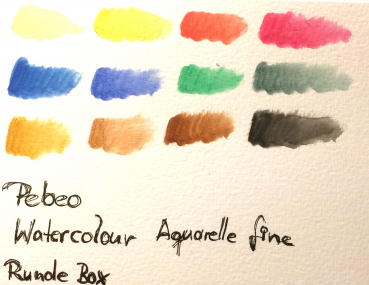 Pebeo
Watercolour Aquarelle fine
Runde Box